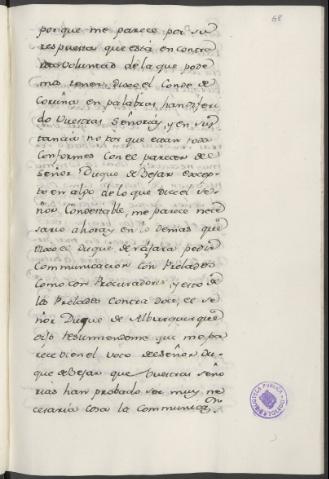 68
porque me parece por su
respuesta que está en contra
voluntad de la que pode
mos tener. Dice el Conde de
Coruña en palabras han diferi
do Vuestras Señorias, y en sus
tancia no por que estan todos
conformes con el parecer de
Señor Duque de Bejar excep
to en algo de lo que dice el Se
ñor Condestable, me parece nece
sario ahora, y en lo demas que
dice el Duque de Najara pedir
Comunicacion con Prelados
como con Procuradores, y esto de
los Prelados Contradice, el se
ñor Duque de Alburquerque
dijo me pa
rece bien el voto de Señor Du
que de Bejar que Vuestras Seño
rias han probado ser muy ne
cesaria cosa la Comunicaon
BIBLIOTECA PUBLICA
TOLEDO